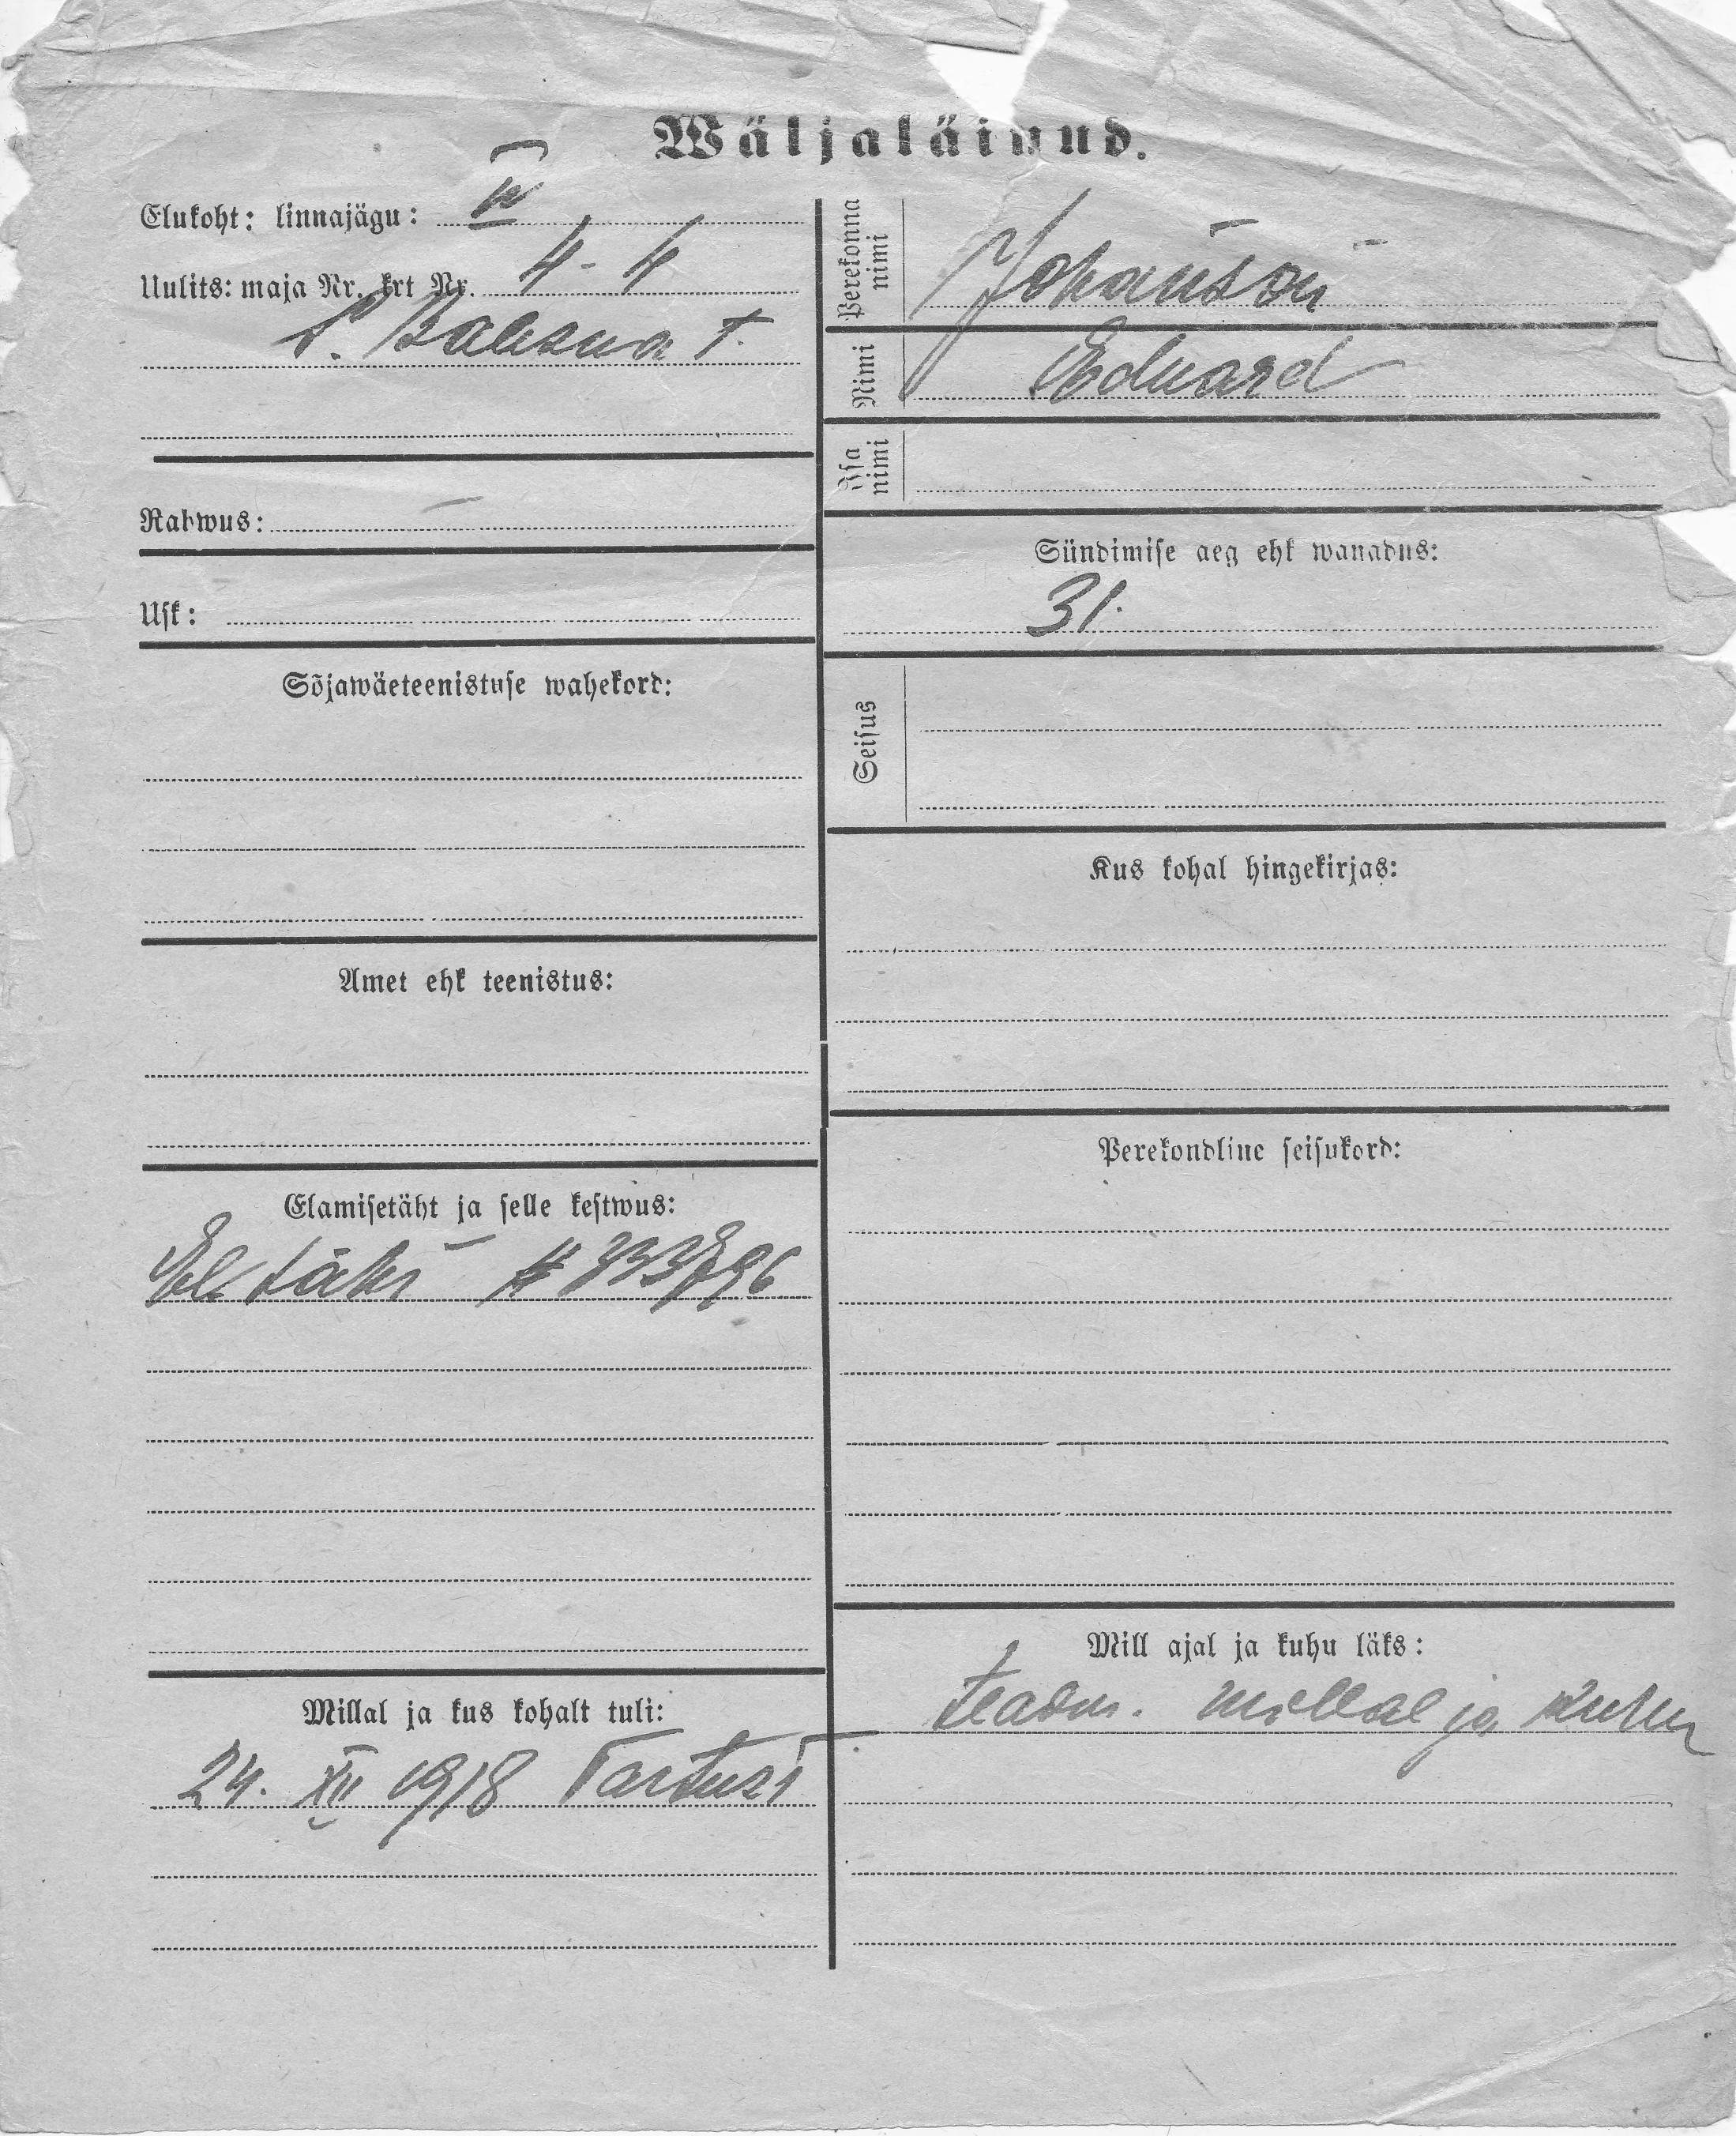 Wäljaläinud.
Elukoht: linnajagu: IV
Uulits: maja Nr. krt Nr. 4-4
t.
Rahwus: —
Usk:
Sõjawäeteenistuse wahekord:
Amet ehk teenistus:
Elamisetäht ja selle kestwus:
El. täht #
Millal ja kus kohalt tuli:
24. XII 1918 Tartust
Perekonna nimi Johanson
Nimi Eduard
Isa nimi
Sündimise aeg ehk wanadus:
31.
Seisus
Kus kohal hingekirjas:
Perekondline seisukord:
Mill ajal ja kuhu läks:
teadm. millal ja kuhu